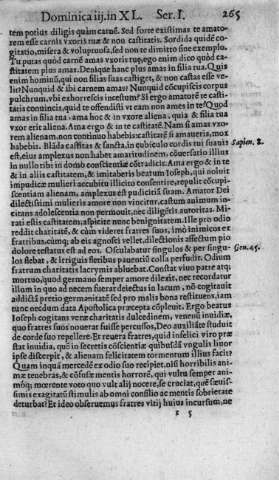 Dominica iij. in XL. Ser. I. 265
tem potius diligis quàm carnẽ. Sed forte existimas te amato-
rem esse carnis vxoris tuæ & non castitatis. Sordida quidẽ co-
gitatio, misera & voluptuosa, sed non te dimitto sine exemplo.
Tu putas quod carnẽ amas vxoris tuę, ego enim dico quòd ca-
stitatem plus amas. Denique hanc plus amas in filia tua. Quis
enim hominũ, qui non filias suas castiget, & non castas esse ve-
lit? Nunquid & ibi carnem amas? Nunquid cõcupiscis corpus
pulchrum, vbi exhorrescis incestum? Si ergo amatorẽ te casti-
tatis conuinci, quid te offensisti vt eam non ames in te? Quod
amas in filia tua ama hoc & in vxore aliena, quia & filia tua
vxor erit aliena. Ama ergo & in te castitatẽ. Nam si amas vxo-
rem alienam, non continuo habebis: castitatẽ si amaueris, mox
habebis. Blãda castitas & sancta, in cubiculo cordis tui suauis Sapien. 8.
est, eius amplexus non habet amaritudinem, cõuersatio illius
in nullo tibi in domo conscientiæ cõtradicit. Ama ergo & in te
& in aliis castitatem, & imitaberis beatum Ioseph, qui noluit
impudicæ mulieri accubitu illicito consentire, repulit cõcupi-
scentiam alienam, amplexus est pudicitiã suam. Amator Dei
dilectissimi mulieris amore non vincitur, castum animum in-
citans adolescentia non permouit, nec diligentis autoritas. Mi-
rati estis castitatem, aspicite benignitatem. Ille pro odio
reddit charitatẽ, & cùm videret fratres suos, imò inimicos ex
fratribus, cùmq; ab eis agnosci vellet, dilectionis affectum pio
dolore testatus est ad eos. Osculabatur singulos & per singu- Gen. 45.
los flebat, & irriguis fletibus pauentiũ colla perfudit. Odium
fratrum charitatis lacrymis abluebat. Constat viuo patre atq;
mortuo, quod germano semper amore dilexit, nec recordatur
illum in quo ad necem fuerat deiectus in lacum, nõ cogitauit
addictã pretio germanitatẽ sed pro malis bona restituens, iam
tunc necdum data Apostolica præcepta cõpleuit. Ergo beatus
Ioseph cogitans veræ charitatis dulcedinem, venenũ inuidiæ,
quo fratres suos nouerat fuisse percussos, Deo auxiliãte studuit
de corde suo repellere. Et reuera fratres, quid infelici viro præ-
stat inuidia, quẽ in secretis cõscientiæ quibusdã vngulis liuor
ipse discerpit, & alienam felicitatem tormentum illius facit?
Quam inqua mercedẽ ex odio suo recipiet, nisi horribilis ani-
mæ tenebras, & cõfusæ mentis horrorẽ, qui vultu semper ani-
móq; mœrente voto quo vult alij nocere, se cruciat, quẽ sæuis-
simis exagitatũ stimulis ab omni consilio ac mentis sobrietate
deturbat? Et ideo obseruemus fratres vitij huius incursum, ne
x 5